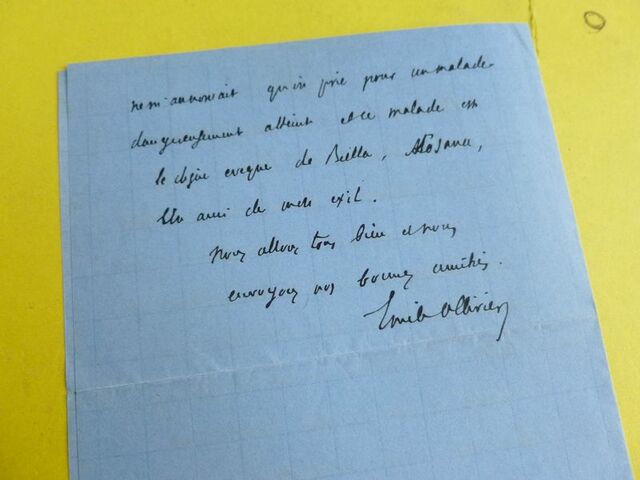 ne m'annonçait qu'on prie pour un malade
dangereusement atteint et ce malade est
le digne eveque de Biella, Losana,
Un ami de mon exil.
nous allons tous bien et nous
envoyons nos bonnes amitiés.
Emile Ollivier